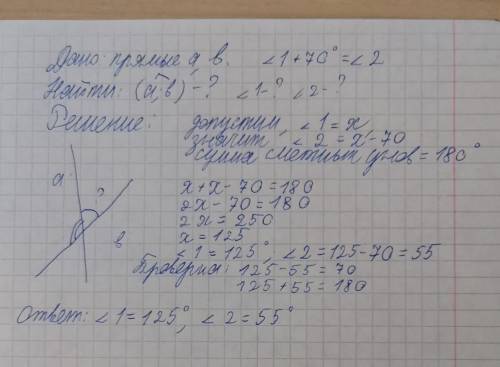 Дано: прямые а, в. ∠1+70°=∠2
Найти: (а;в) -? ∠1-? ∠2-?
Решение: допустим, ∠1=x
значит ∠2=x-70
сумма смежных углов=180°
а
?
в
x+x-70=180
2x-70=180
2x=250
x=125
∠1=125°, ∠2=125-70=55
Проверка: 125-55=70
125+55=180
Ответ: ∠1=125°, ∠2=55°